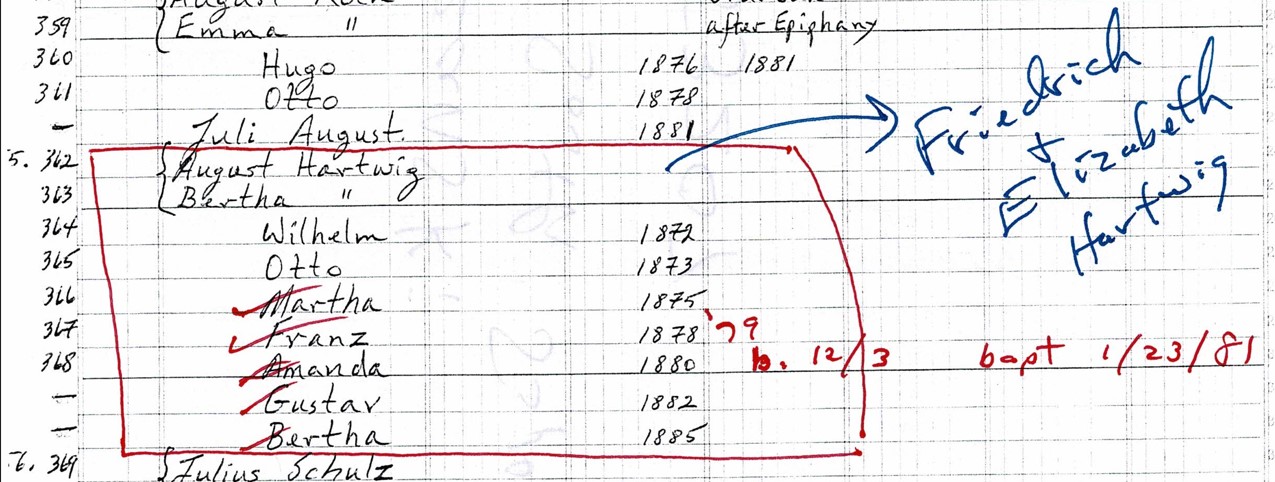 359 {Emma " after Epiphany
360 Hugo 1876 1881
361 Otto 1878
— Juli August. 1881
5. 362 {August Hartwig
363 {Bertha "
364 Wilhelm 1872
365 Otto 1873
366 Martha 1875
367 Franz 1878 '79
368 Amanda 1880 b. 12/3 bapt 1/23/81
— Gustav 1882
— Bertha 1885
6. 369 {Julius Schulz
Friedrich
+
Elizabeth
Hartwig